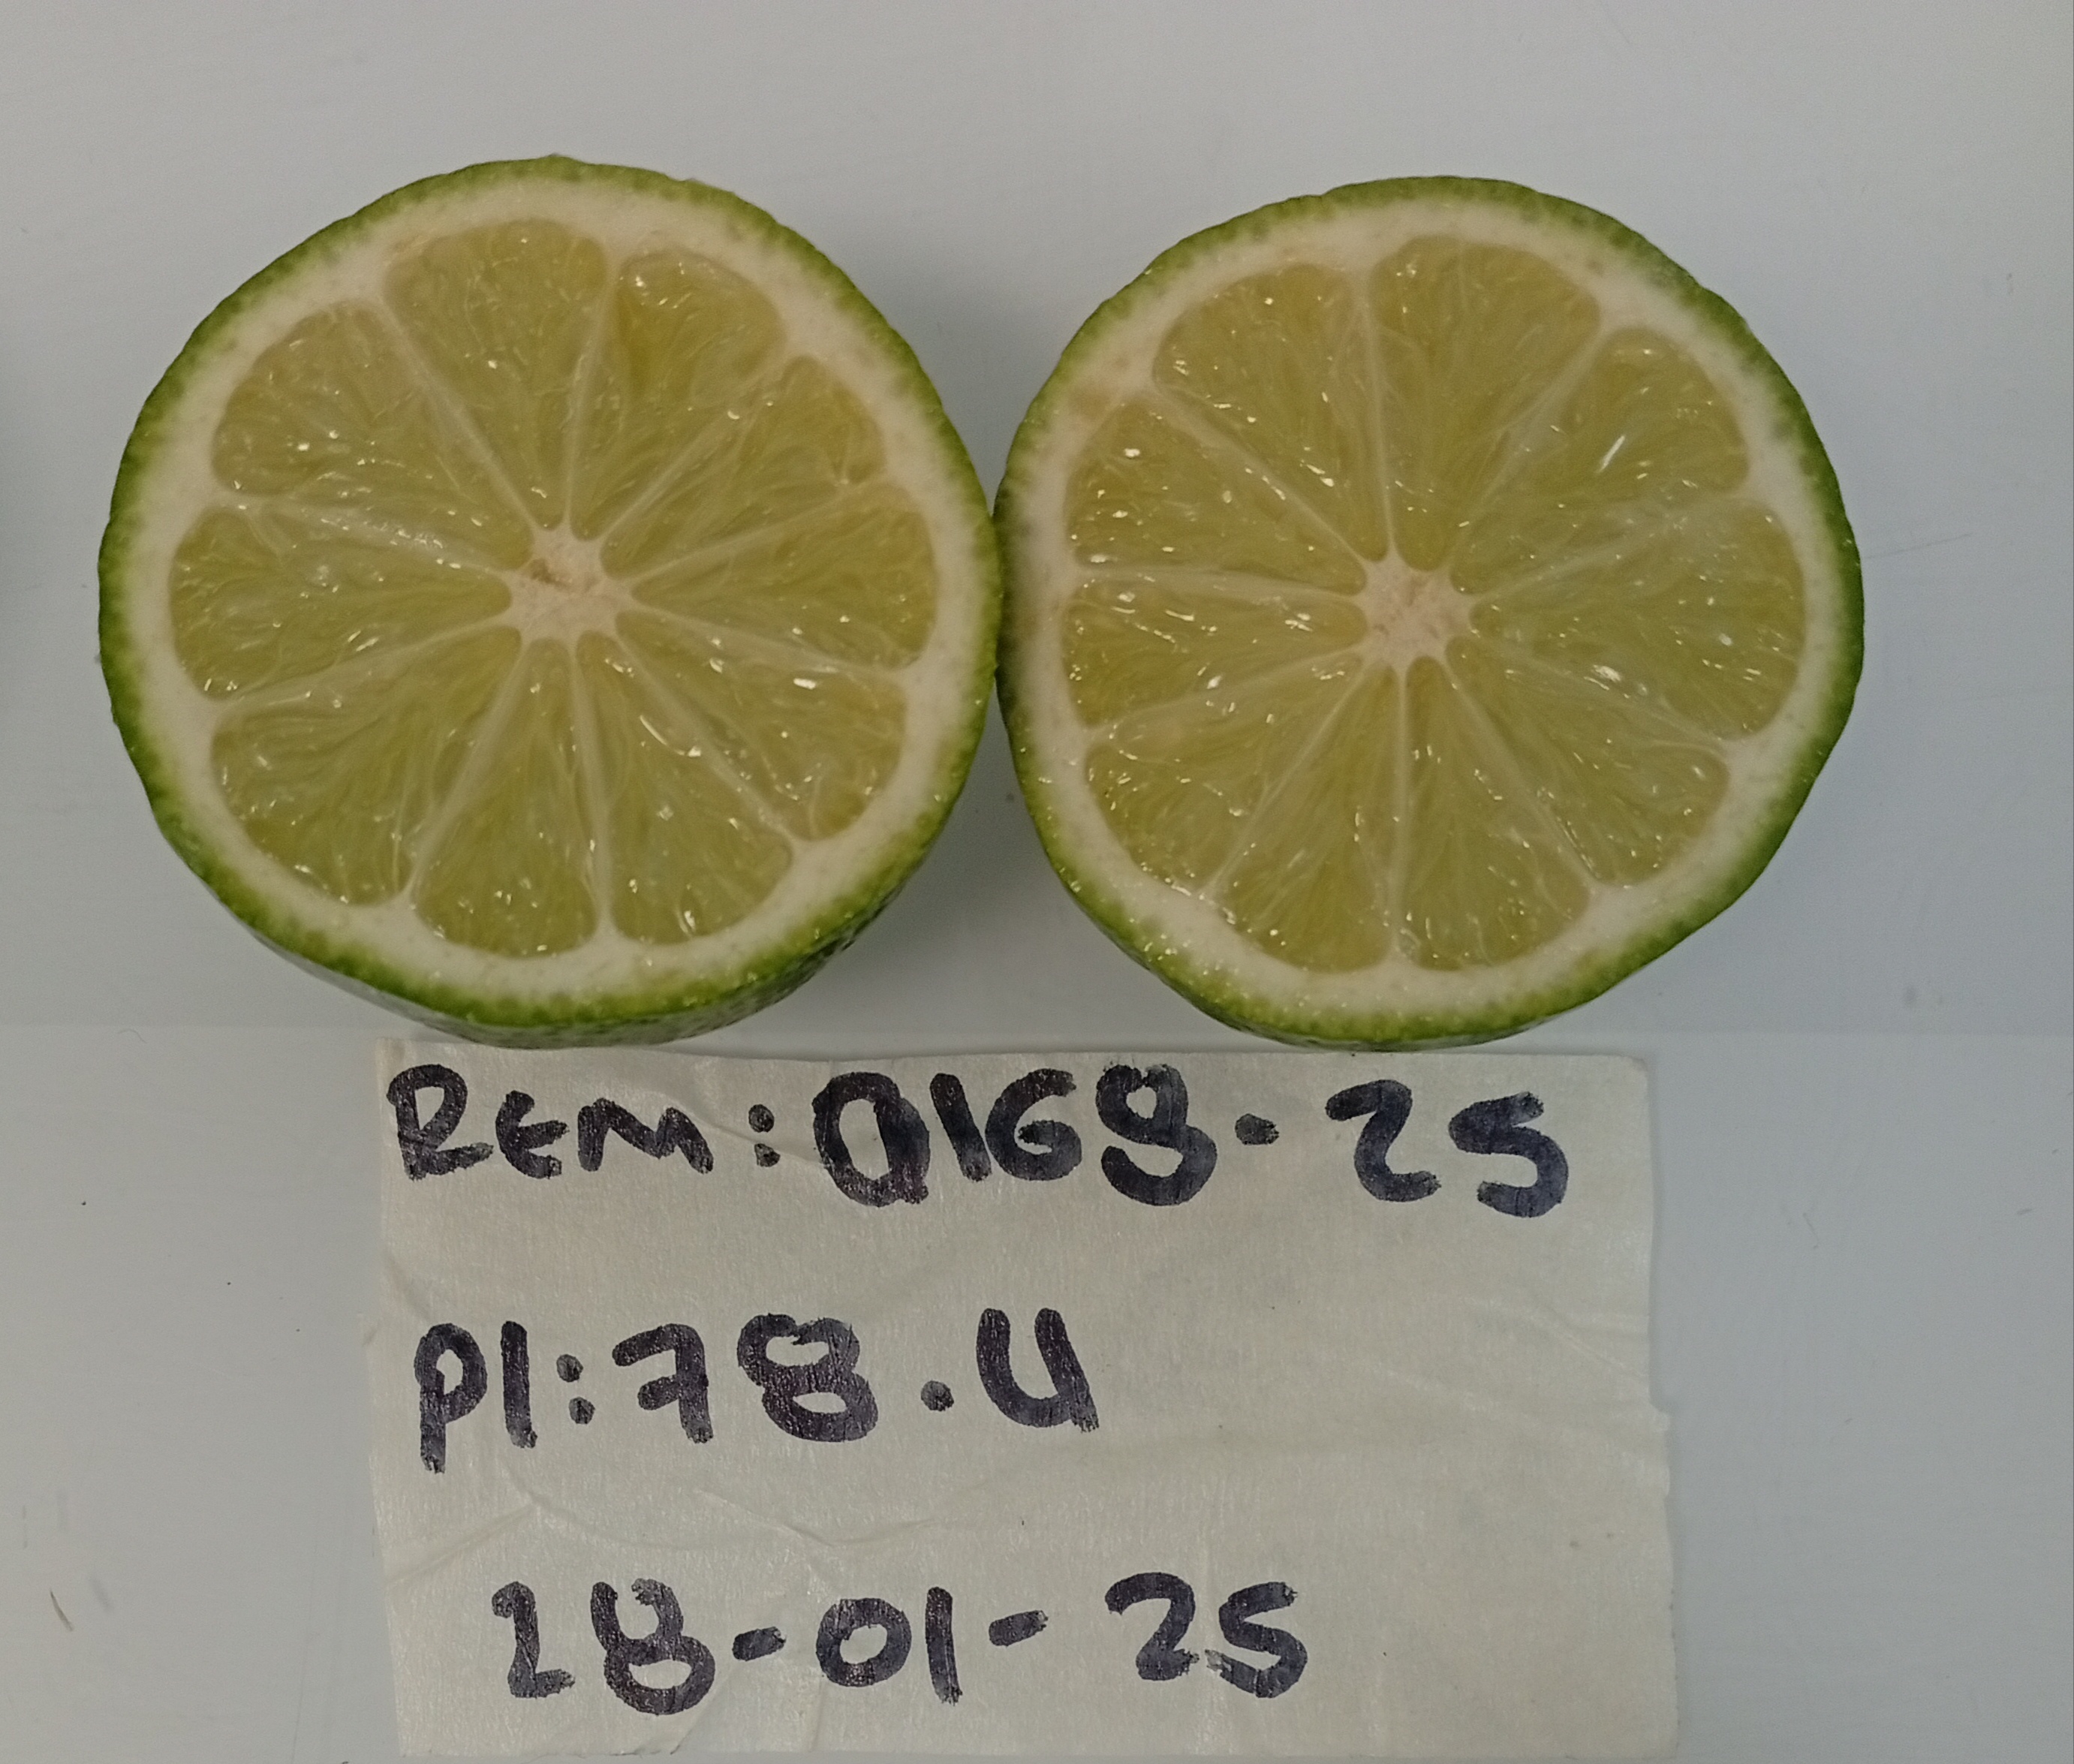 REM: 0168-25
Pl: 78.U
28-01-25